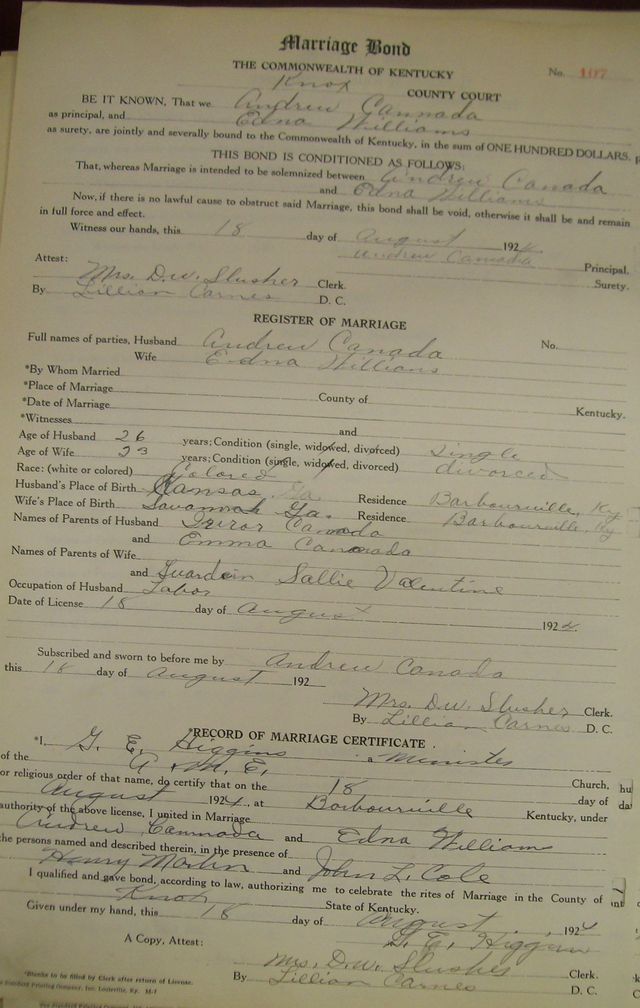 Marriage Bond
THE COMMONWEALTH OF KENTUCKY No. 107
Knox COUNTY COURT
BE IT KNOWN, That we Andrew Cannada
as principal, and Edna Williams
as surety, are jointly and severally bound to the Commonwealth of Kentucky, in the sum of ONE HUNDRED DOLLARS.
THIS BOND IS CONDITIONED AS FOLLOWS:
That, whereas Marriage is intended to be solemnized between Andrew Canada
and Edna Williams
Now, if there is no lawful cause to obstruct said Marriage, this bond shall be void, otherwise it shall be and remain
in full force and effect.
Witness our hands, this 18 day of August 1924
Andrew Cannada Principal.
Attest: Surety.
Mrs. D.W. Slusher Clerk.
By Lillian Carnes D. C.
REGISTER OF MARRIAGE
Full names of parties, Husband Andrew Canada No.
Wife Edna Williams
*By Whom Married
*Place of Marriage County of Kentucky.
*Date of Marriage
*Witnesses and
Age of Husband 26 years; Condition (single, widowed, divorced) Single
Age of Wife 23 years; Condition (single, widowed, divorced) divorced
Race: (white or colored) Colored
Husband's Place of Birth Kansas, Ga. Residence Barbourville, Ky
Wife's Place of Birth Savannah Ga. Residence Barbourville, Ky
Names of Parents of Husband Canada
and Emma Canada
Names of Parents of Wife
and Guardein Sallie Valentine
Occupation of Husband Labor
Date of License 18 day of August 1924.
Subscribed and sworn to before me by Andrew Canada
this 18 day of August 192
Mrs. D.W. Slusher Clerk.
By Lillian Carnes D. C.
*RECORD OF MARRIAGE CERTIFICATE.
*I, G. E. Higgins a Minister
of the A. M. E. Church,
or religious order of that name, do certify that on the 18 day of
August 1924, at Barbourville Kentucky, under
authority of the above license, I united in Marriage
Andrew Cannada and Edna Williams
the persons named and described therein, in the presence of
Henry Martin and John L. Cole
I qualified and gave bond, according to law, authorizing me to celebrate the rites of Marriage in the County of
Knox State of Kentucky.
Given under my hand, this 18 day of August, 1924
G. E. Higgins
A Copy, Attest: Mrs. D.W. Slusher Clerk.
By Lillian Carnes D. C.
*Blanks to be filled by Clerk after return of License.
Standard Printing Company, Inc. Louisville, Ky. M-7